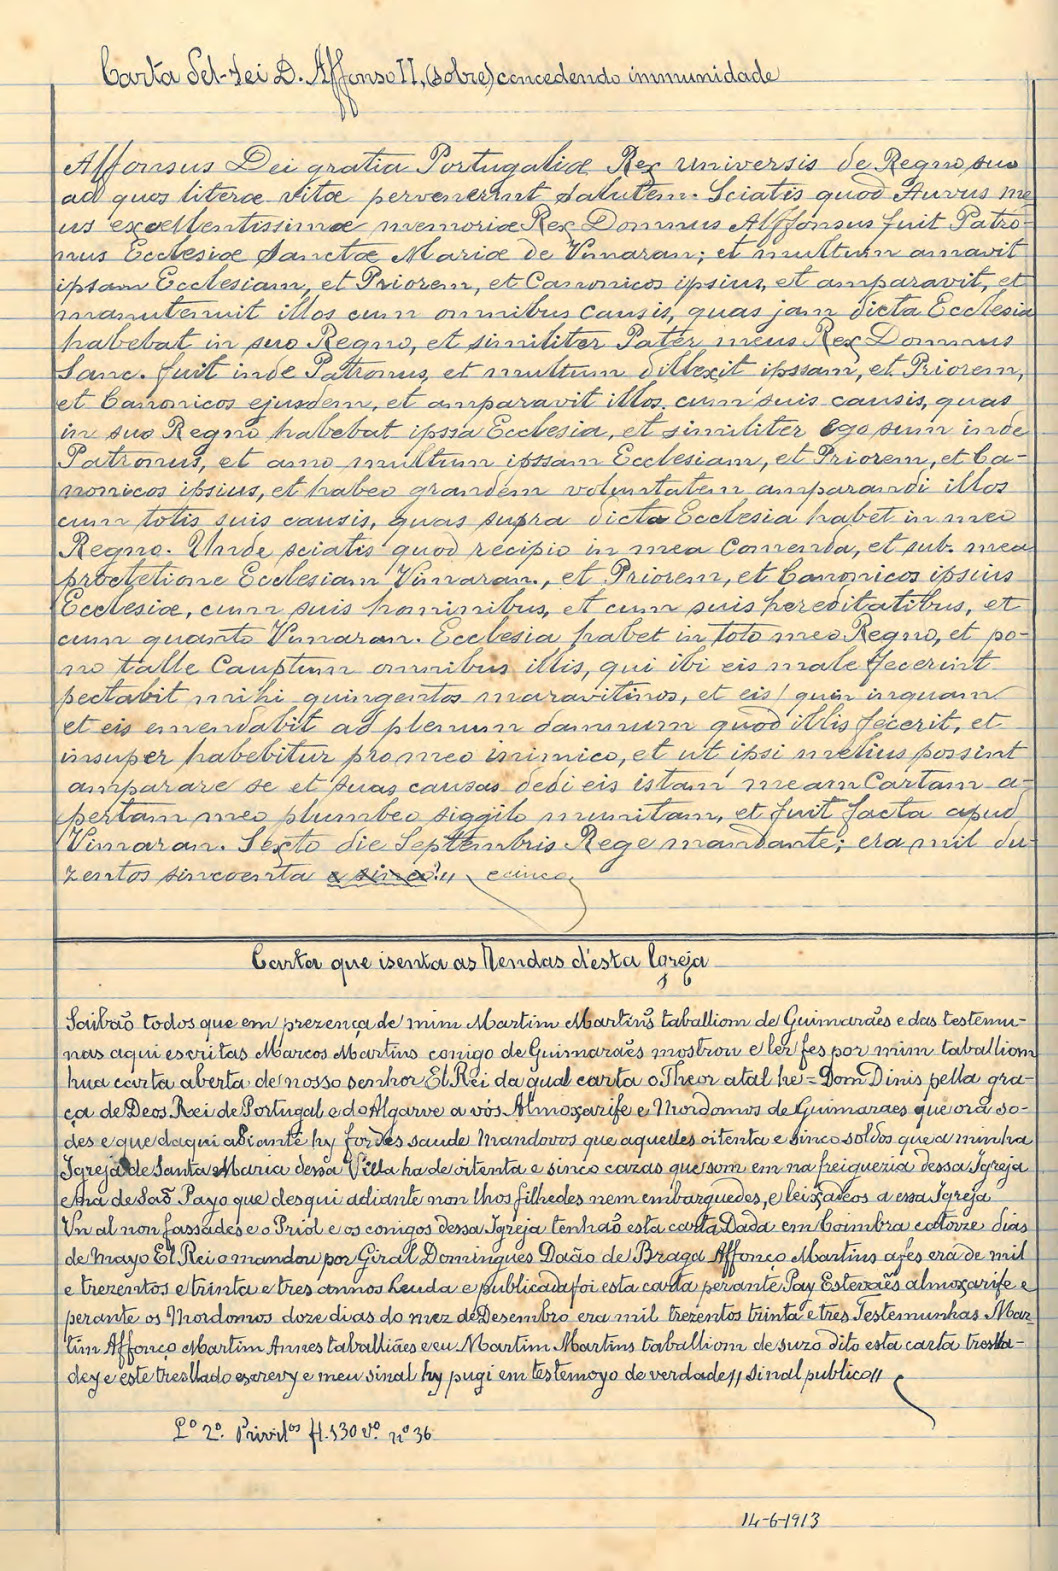 Carta del-Rei D. Affonso II, (sobre) concedendo immunidade
Affonsus Dei gratia Portugaliæ Rex universis de Regno suo
ad quos literæ vitæ pervenerint salutem. Sciatis quod Auvus me-
us excellentissimæ memoriæ Rex Domnus Alffonsus fuit Patro-
nus Ecclesiæ Sanctæ Mariæ de Vimaran; et multum amavit
ipsam Ecclesiam, et Priorem, et Canonicos ipsius, et amparavit, et
manutenuit illos cum omnibus causis, quas jam dicta Ecclesia
habebat in suo Regno, et similiter Pater meus Rex Domnus
Sanc. fuit inde Patronus, et multum dillexit ipssam, et Priorem,
et Canonicos ejusdem, et amparavit illos cum suis causis, quas
in suo Regno habebat ipssa Ecclesia, et similiter ego sum inde
Patronus, et amo multum ipssam Ecclesiam, et Priorem, et Ca-
nonicos ipsius, et habeo grandem voluntatem amparandi illos
cum totis suis causis, quas supra dicta Ecclesia habet in meo
Regno. Unde sciatis quod recipio in mea Comenda, et sub. mea
proctetione Ecclesiam Vimaran., et Priorem, et Canonicos ipsius
Ecclesiæ, cum suis hominibus, et cum suis hereditatibus, et
cum quanto Vimaran. Ecclesia habet in toto meo Regno, et po-
no talle Cauptum omnibus illis, qui ibi eis male fecerint
pectabit mihi quingentos maravitinos, et eis / quin inquam
et eis emendabit ad plenum damnum quod illis fecerit, et
insuper habebitur pro meo inimico, et ut ipsi melius possint
amparare se et suas causas dedi eis istam meam Cartam a-
pertam meo plumbeo siggilo munitam, et fuit facta apud
Vimaran. Sexto die Septembris Rege mandante; era mil du-
zentos sincoenta e sinco?,, e cinco
Carta que isenta as Rendas d'esta Igreja
Saibaõ todos que em prezença de mim Martim Martins taballiom de Guimarães e das testemu-
nas aqui escritas Marcos Martins conigo de Guimaraẽs mostrou e ler fes por mim taballiom
hua carta aberta de nosso senhor El Rei da qual carta o Theor atal he = Dom Dinis pella gra-
ça de Deos Rei de Portugal e do Algarve a vós Almoxarife e Mordomos de Guimaraes que ora so-
des e que daqui adiante hy fordes saude Mandovos que aquelles oitenta e sinco soldos que a minha
Igreja de Santa Maria dessa Villa ha de oitenta e sinco cazas que som em na freiguezia dessa Igreja
e na de Saõ Payo que desqui adiante non lhos filhedes nem embarguedes, e leixadeos a essa Igreja
Vn al non fassades e o Priol e os conigos dessa Igreja tenhaõ esta carta Dada em Coimbra catorze dias
de Mayo El Rei o mandou por Giral Domingues Daão de Braga Affonço Martins a fés era de mil
e trezentos e trinta e tres annos Leuda e publicada foi esta carta perante Pay Estevaẽs almoxarife e
perante os Mordomos doze dias do mez de Desembro era mil trezentos trinta e tres Testemunhas Mar
tim Affonço Martim Annes taballiães e eu Martim Martins taballiom de suzo dito esta carta tresla-
dey e este tresllado escrevy e meu sinal hy pugi em testemoyo de verdade,, Sinal publico,,
Lº 2º. Privilos fl. 130 vº. nº 36
14-6-1913